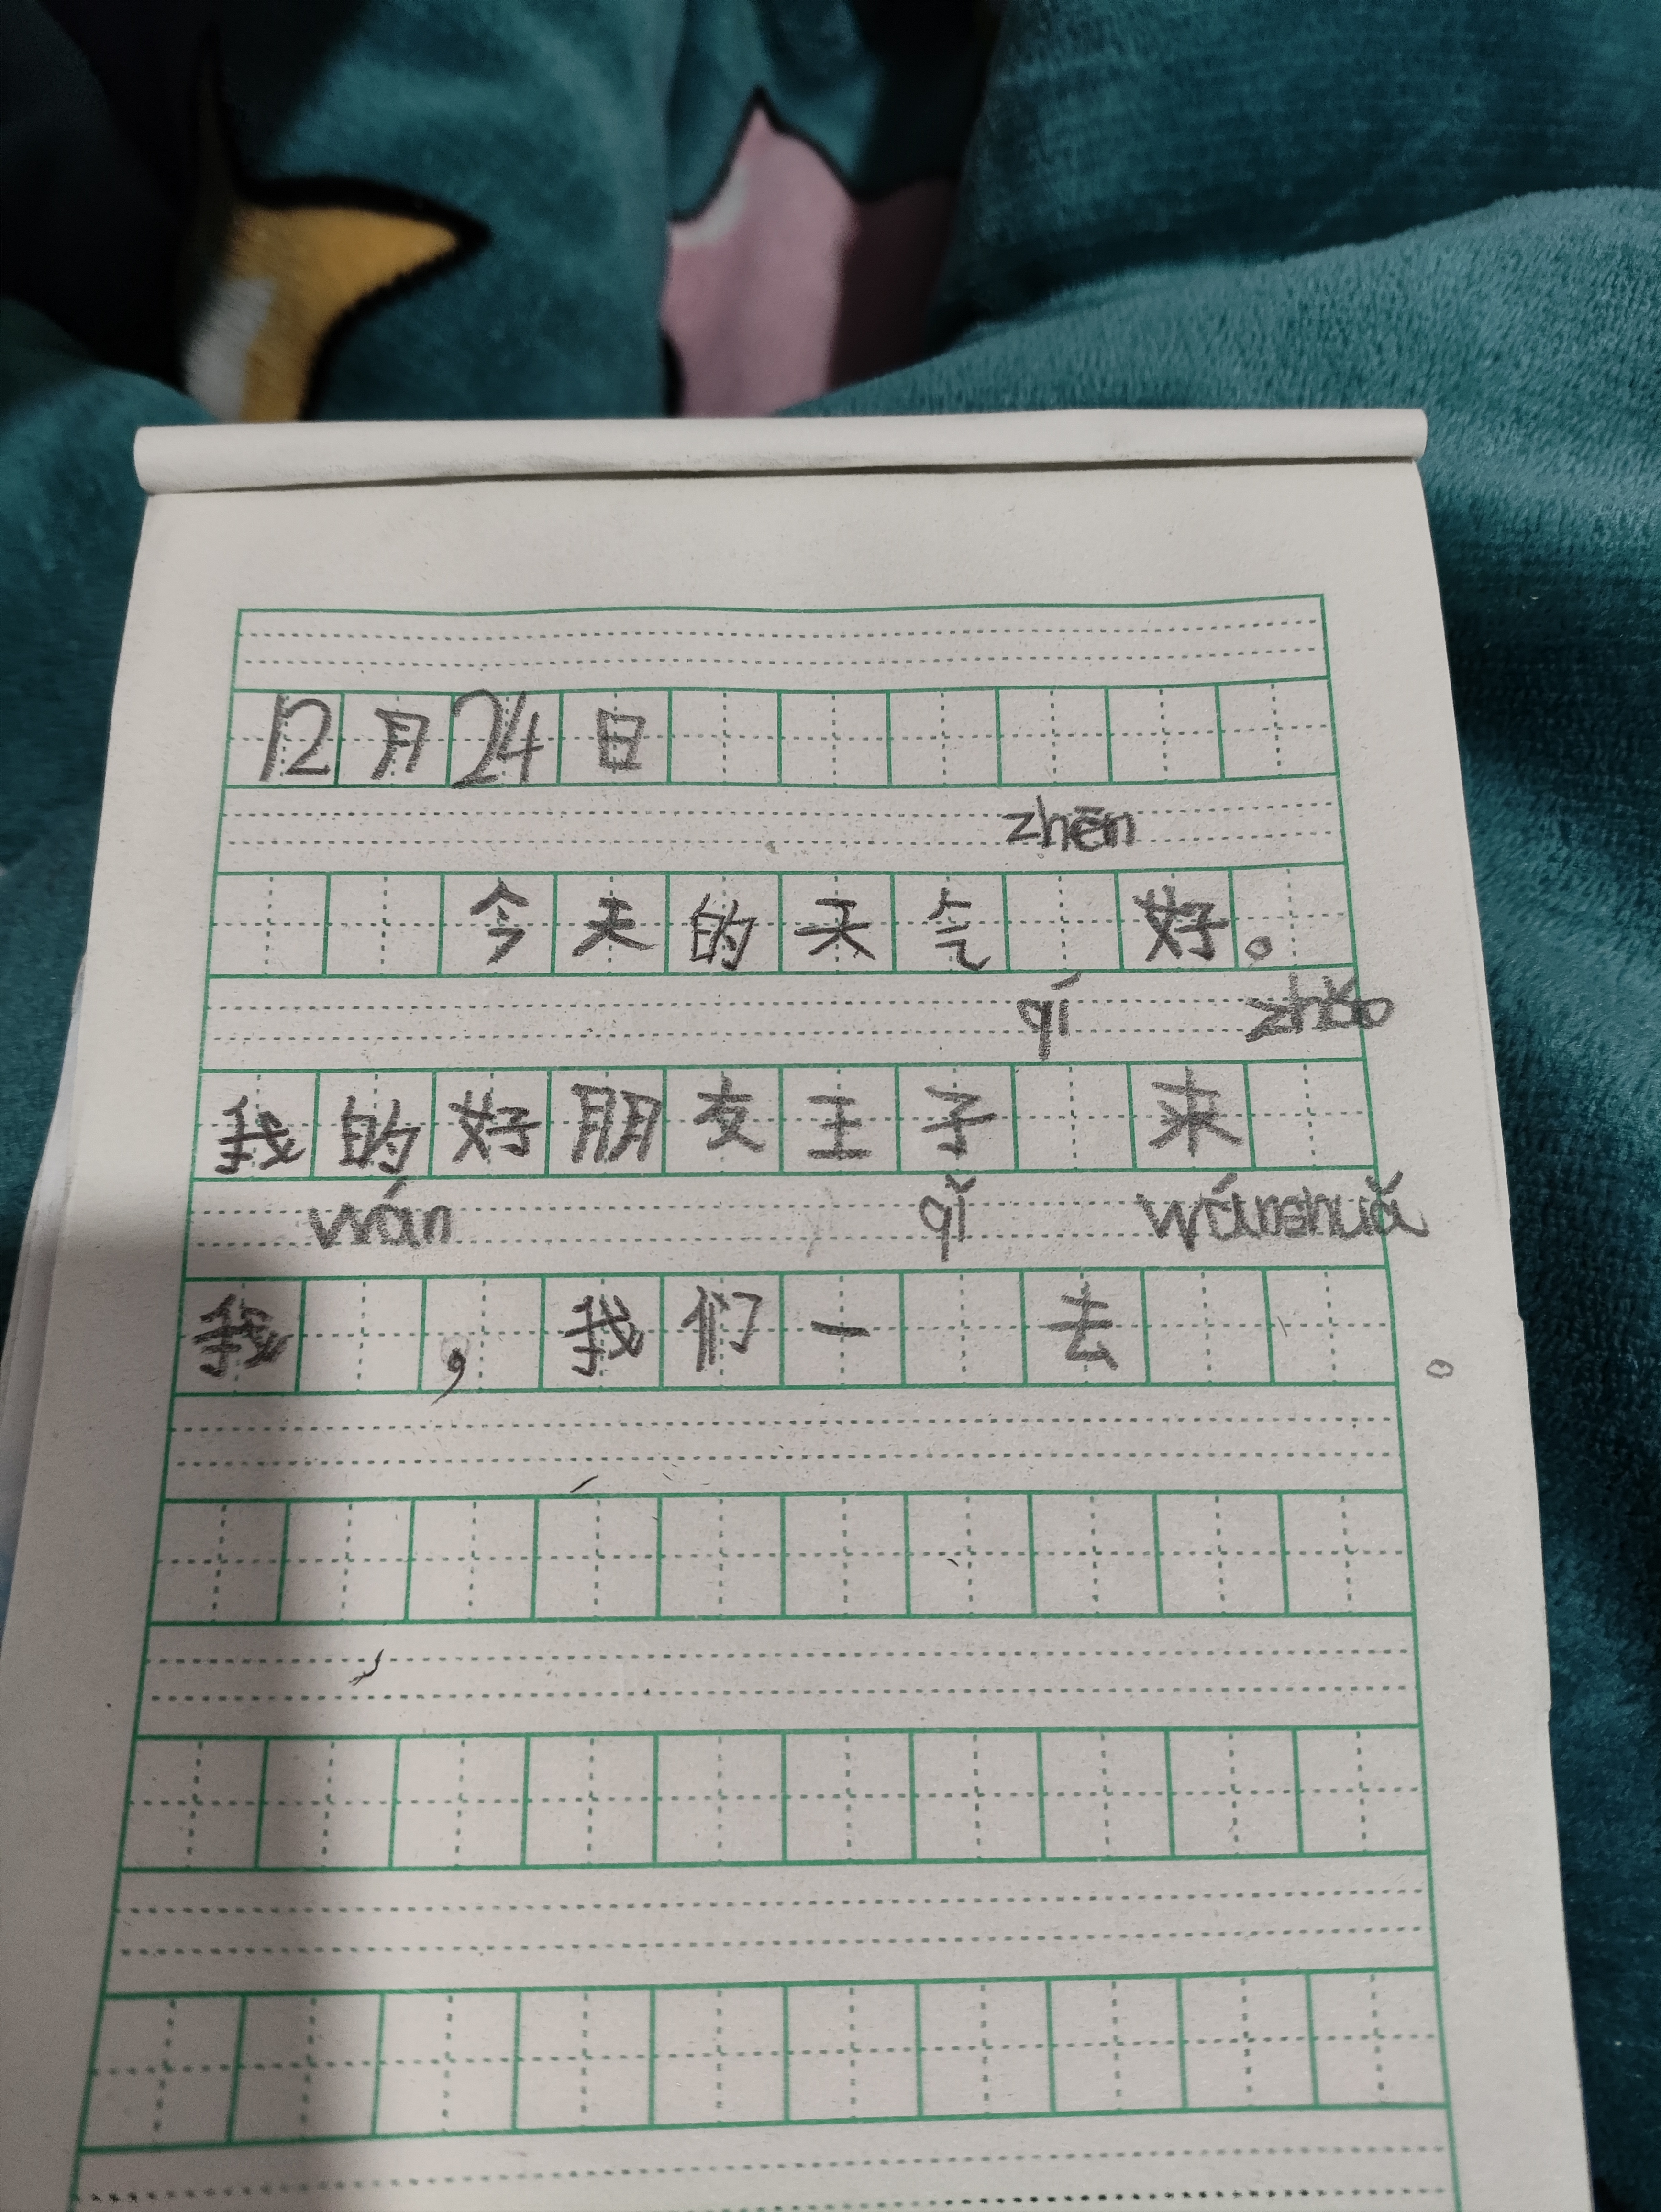 12月24日
zhēn
今天的天气 好。
qí zhǎo
我的好朋友王子 来
wán qǐ wánshuǎ
我 ,我们一 去 。